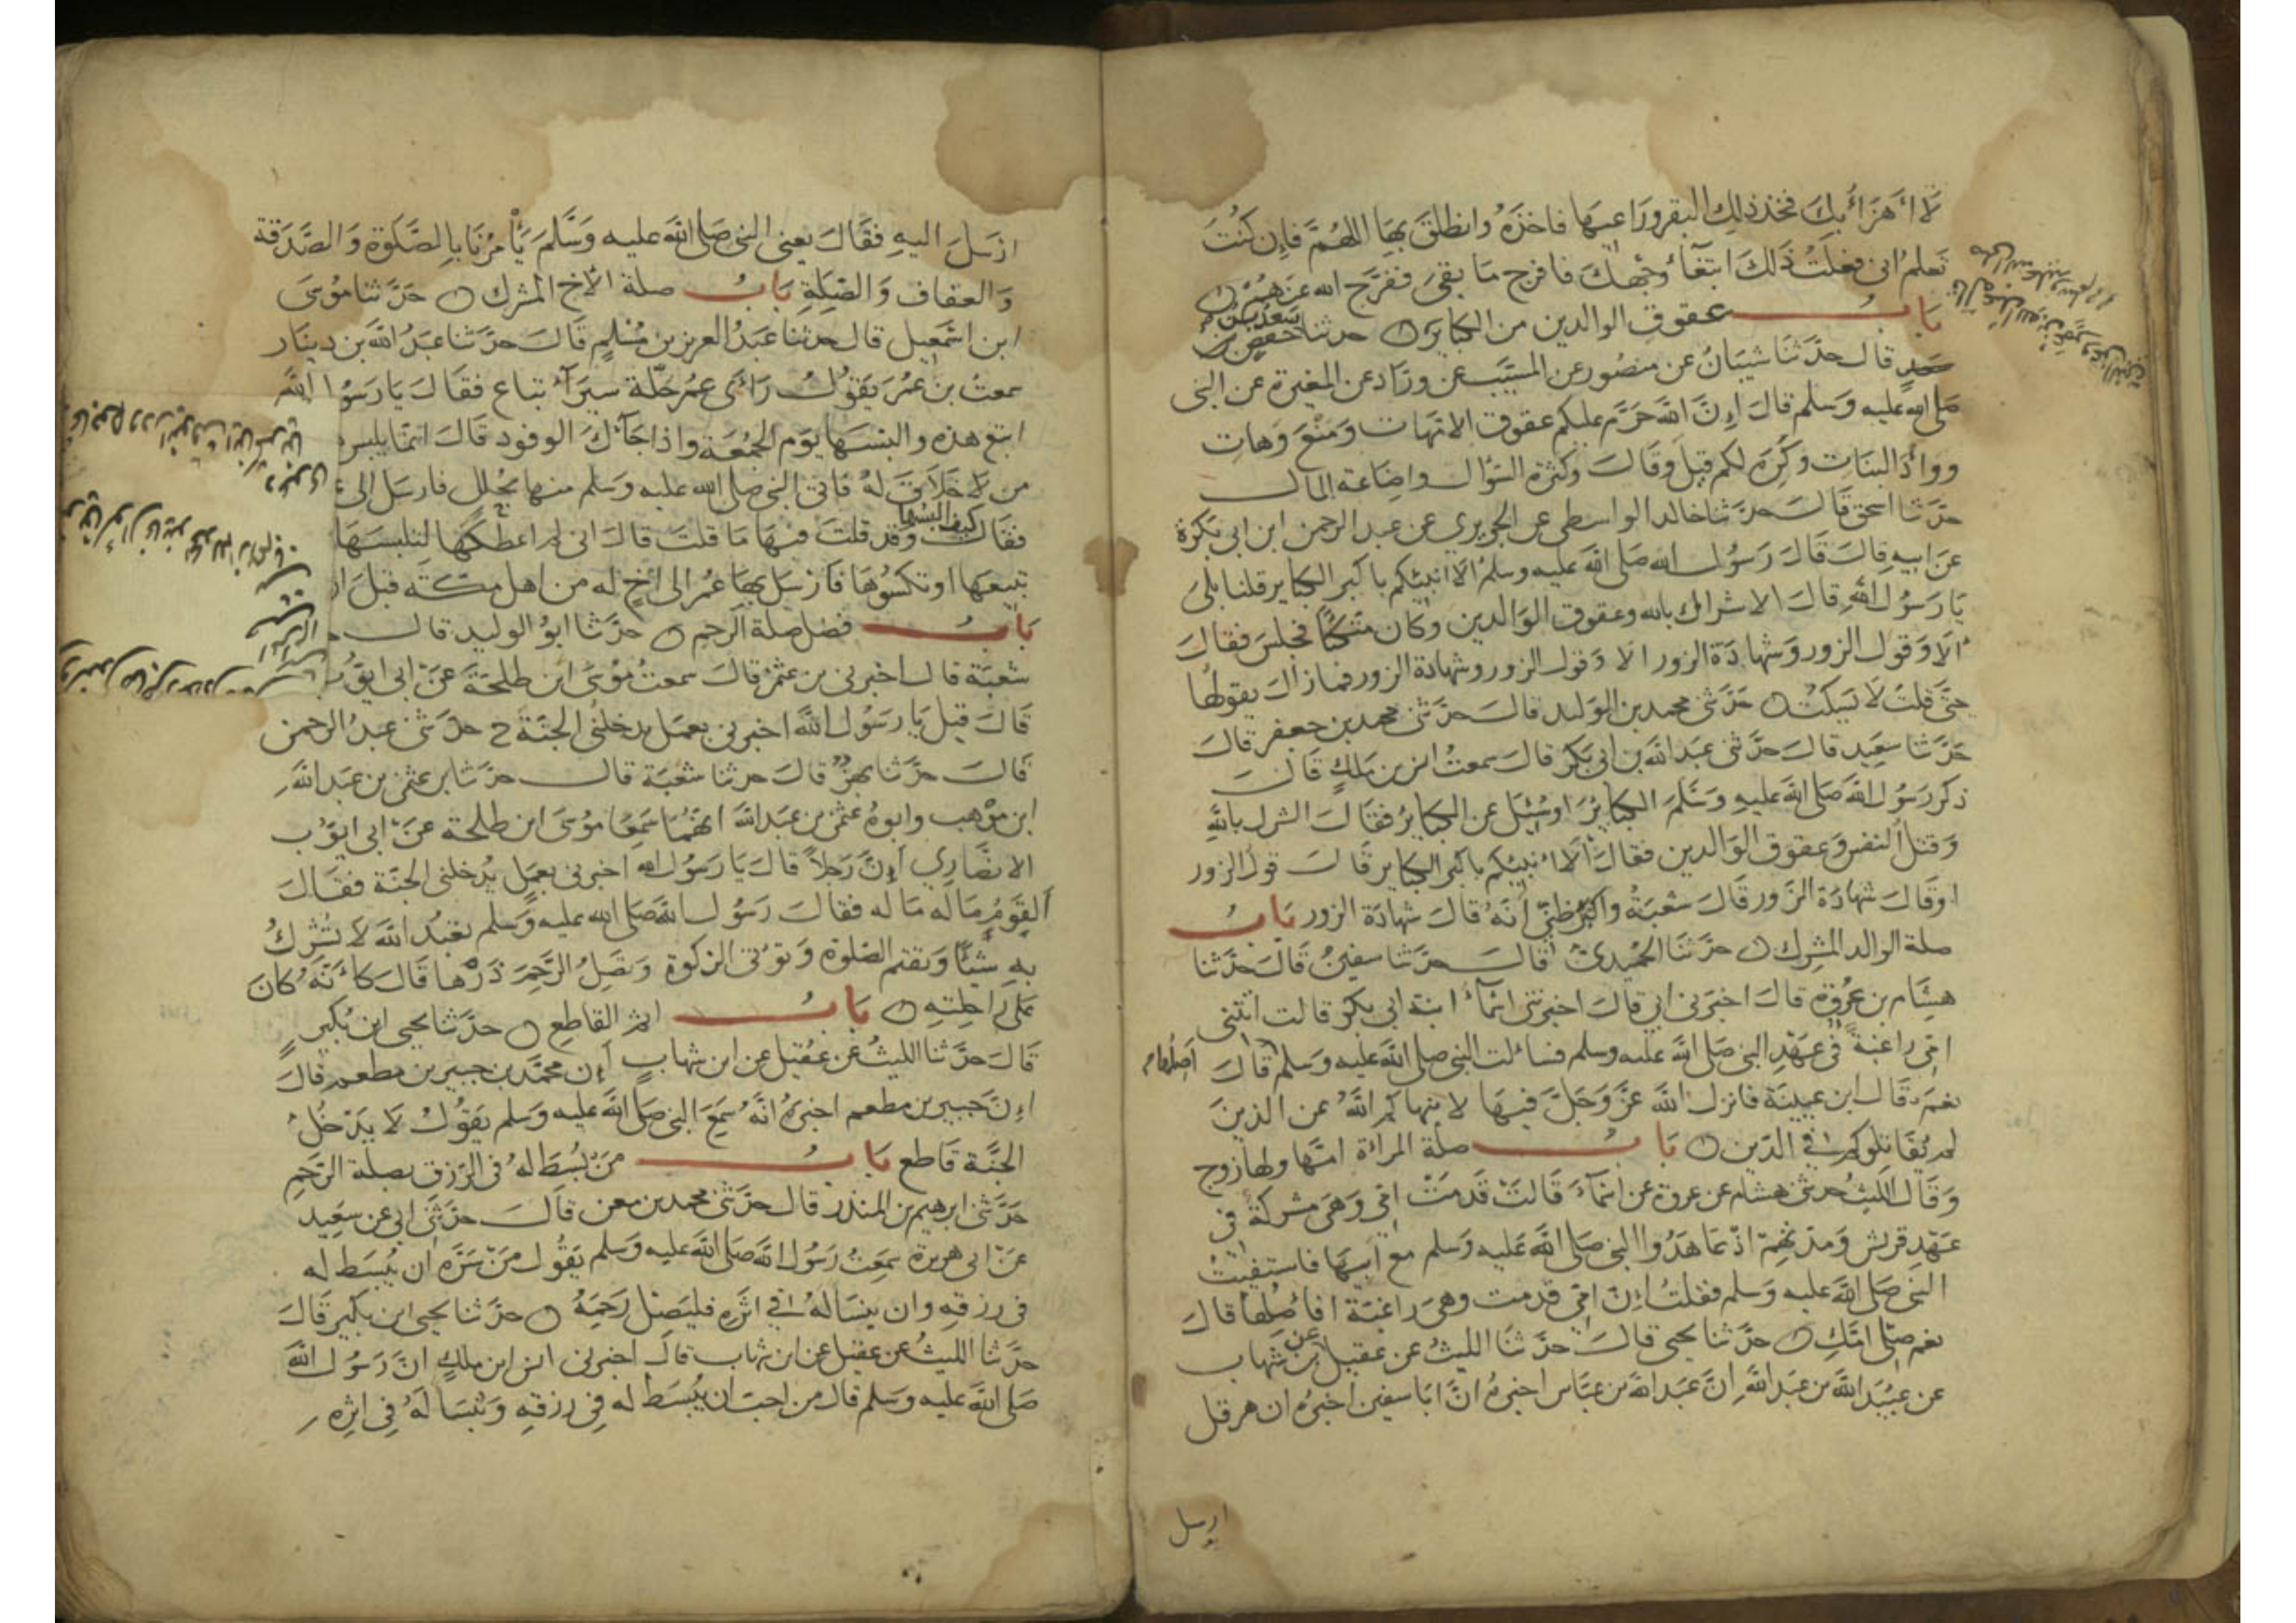 لا أهزأ بك فخذ ذلك البقر وراعيها فاخذه وانطلق بها اللهم فإن كنت
تعلم انى فعلت ذلك ابتغاء وجهك فافرج ما بقى ففرج الله عنهم
باب عقوق الوالدين من الكباير حدثنا سعد بن حفص
قال حدثنا شيبان عن منصور عن المسيب عن وراد عن المغيرة عن النبى
صلى الله عليه وسلم قال إن الله حرم عليكم عقوق الامهات ومنع وهات
ووأد البنات وكره لكم قيل وقال وكثرة السؤال واضاعة المال
حدثنا اسحق قال حدثنا خالد الواسطى عن الجريرى عن عبد الرحمن ابن ابى بكرة
عن ابيه قال قال رسول الله صلى الله عليه وسلم ألا انبئكم باكبر الكباير قلنا بلى
يا رسول الله قال الاشراك بالله وعقوق الوالدين وكان متكئا فجلس فقال
ألا وقول الزور وشهادة الزور الا وقول الزور وشهادة الزور فما زال يقولها
حتى قلت لا يسكت حدثنى محمد بن الوليد قال حدثنى محمد بن جعفر قال
حدثنا سعيد قال حدثنى عبد الله بن ابى بكر قال سمعت انس بن ملك قال
ذكر رسول الله صلى الله عليه وسلم الكباير او سئل عن الكباير فقال الشرك بالله
وقتل النفس وعقوق الوالدين فقال ألا انبئكم باكبر الكباير قال قول الزور
او قال شهادة الزور قال شعبة واكبر ظنى أنه قال شهادة الزور باب
صلة الوالد المشرك حدثنا الحميدى قال حدثنا سفين قال حدثنا
هشام بن عروة قال اخبرنى ابى قال اخبرتنى اسماء ابنة ابى بكر قالت اتتنى
امى راغبة فى عهد النبى صلى الله عليه وسلم فسألت النبى صلى الله عليه وسلم قال أصلها
نعم قال ابن عيينة فانزل الله عز وجل فيها لا ينهاكم الله عن الذين
لم يقاتلوكم فى الدين باب صلة المرأة امها ولها زوج
وقال الليث حدثنى هشام عن عروة عن اسماء قالت قدمت امى وهى مشركة فى
عهد قريش ومدتهم اذ عاهدوا النبى صلى الله عليه وسلم مع ابيها فاستفتيت
النبى صلى الله عليه وسلم فقلت إن امى قدمت وهى راغبة افأصلها قال
نعم صلى امك حدثنا يحيى قال حدثنا الليث عن عقيل عن ابن شهاب
عن عبيد الله بن عبد الله ان عبد الله بن عباس اخبره ان ابا سفين اخبره ان هرقل
ارسل
ارسل اليه فقال يعنى النبى صلى الله عليه وسلم يأمرنا بالصلوة والصدقة
والعفاف والصلة باب صلة الأخ المشرك حدثنا موسى
ابن اسمعيل قال حدثنا عبد العزيز بن مسلم قال حدثنا عبد الله بن دينار
سمعت بن عمر يقول رأى عمر حلة سيراء تباع فقال يا رسول الله
ابتع هذه والبسها يوم الجمعة واذا جآءك الوفود قال انما يلبس
من لا خلاق له فاتى النبى صلى الله عليه وسلم منها بحلل فارسل الى
فقال كيف البسها وقد قلت فيها ما قلت قال انى لم اعطكها لتلبسها
تبيعها او تكسوها فارسل بها عمر الى أخ له من اهل مكة قبل ان
باب فضل صلة الرحم حدثنا ابو الوليد قال
شعبة قال اخبرنى بن عثمن قال سمعت موسى ابن طلحة عن ابى ايوب
قال قيل يا رسول الله اخبرنى بعمل يدخلنى الجنة ح حدثنى عبد الرحمن
قال حدثنا بهز قال حدثنا شعبة قال حدثنا بن عثمن بن عبد الله
ابن موهب وابوه عثمن بن عبد الله انهما سمعا موسى ابن طلحة عن ابى ايوب
الانصاري إن رجلا قال يا رسول الله اخبرنى بعمل يدخلنى الجنة فقال
القوم ما له ما له فقال رسول الله صلى الله عليه وسلم تعبد الله لا تشرك
به شيئا وتقيم الصلوة وتؤتى الزكوة وتصل الرحم ذرها قال كأنه كان
على راحلته باب اثم القاطع حدثنا يحيى ابن بكير
قال حدثنا الليث عن عقيل عن ابن شهاب إن محمد بن جبير بن مطعم قال
إن جبير بن مطعم اخبره انه سمع النبى صلى الله عليه وسلم يقول لا يدخل
الجنة قاطع باب من بسط له فى الرزق بصلة الرحم
حدثنى ابرهيم بن المنذر قال حدثنى محمد بن معن قال حدثنى ابى عن سعيد
عن ابى هريرة سمعت رسول الله صلى الله عليه وسلم يقول من سره ان يبسط له
فى رزقه وان ينسأ له فى اثره فليصل رحمه حدثنا يحيى ابن بكير قال
حدثنا الليث عن عقيل عن ابن شهاب قال اخبرنى انس ابن ملك ان رسول الله
صلى الله عليه وسلم قال من احب ان يبسط له فى رزقه وينسا له فى اثره